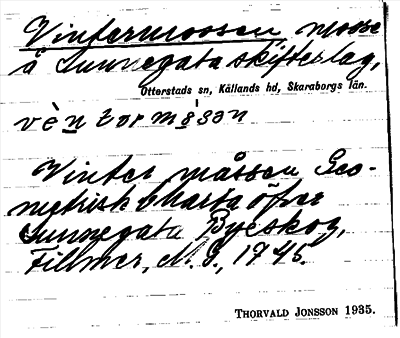 Vintermossen mosse
å Sunnegata skifteslag,
Otterstads sn, Kållands hd, Skaraborgs län.
vèntormòsən
Winter måssen Geo-
metrisk Charta öfver
Sunnegata Byeskog,
Fillmer, M. G., 1745.
THORVALD JONSSON 1935.